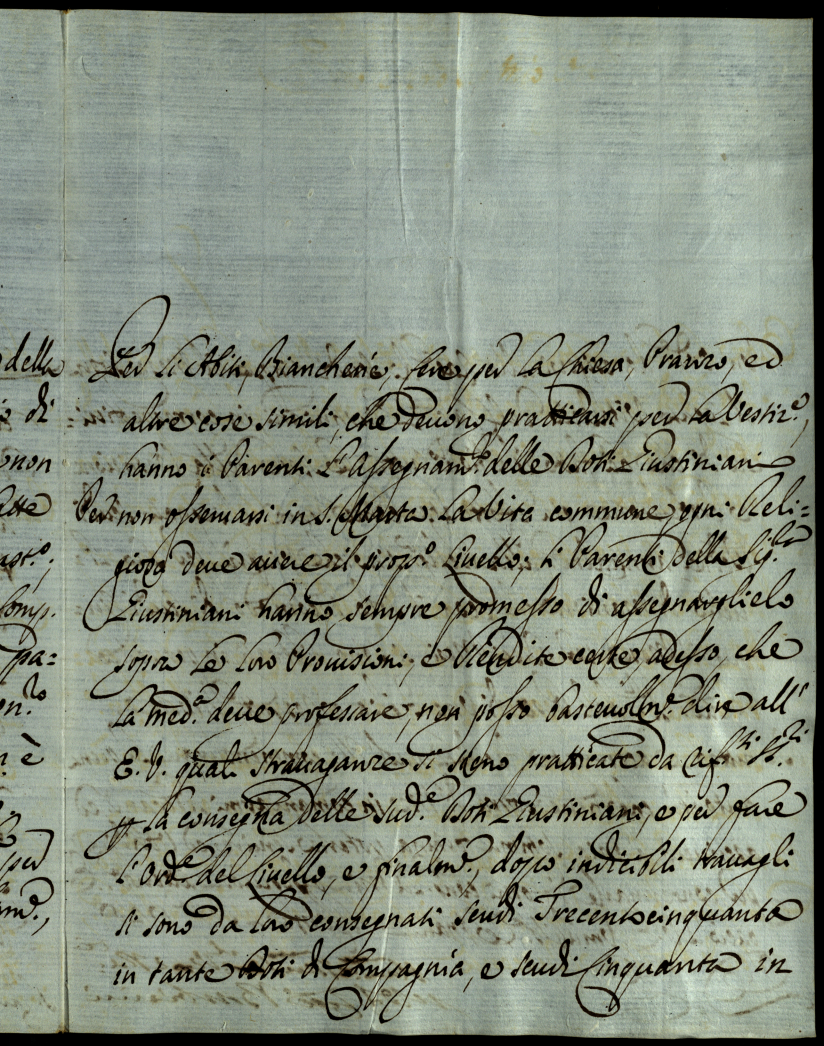 della
Per li Abiti, Biancherie, Cere per la Chiesa, Pranzo, ed
di
altre cose simili, che devono pratticarsi per la Vestiz.e,
non
hanno i Parenti l'Assegnam.to delle Doti Giustiniani
Per non osservarsi in S. Marta la Vita commune, ogni Reli=
giosa deve avere il prop.o Livello; li Parenti della Sig.ra
Giustiniani hanno sempre promesso di assegnarglielo
Comp.
sopra le loro Provisioni, e Rendite certe, adesso, che
pa=
la med.a deve professare, non posso bastevolm.e dire all'
E. V. quali stravaganze si sieno pratticate da
è
p la consegna delle sud.e Doti Giustiniani, e per fare
per
l'Ord.e del Livello, e finalm.e, dopo indicibili travagli
si sono da loro consegnati scudi Trecentocinquanta
in tante Doti di Compagnia, e scudi Cinquanta in